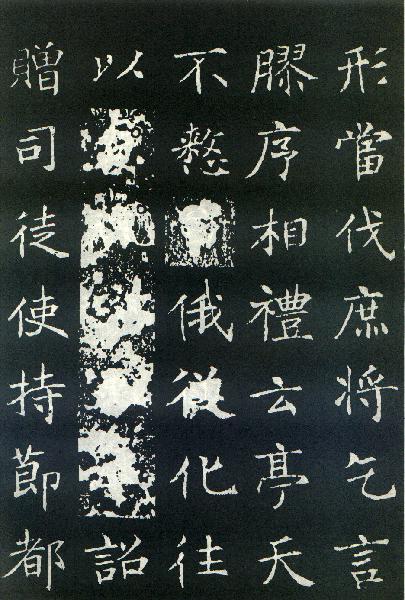 形當伐庶將乞言
膠序相禮云亭天
不憖俄從化往
以詔
贈司徒使持節都